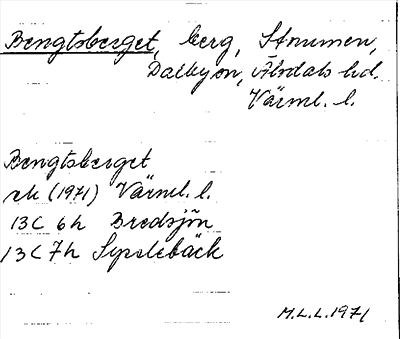 Bengtsberget, berg, Strumen,
Dalbyen, Älvdals hd.
Värml. l.
Bengtsberget
rk (1971) Värml. l.
13C 6h Bredsjön
13C 7h Sysslebäck
M.L.L. 1971